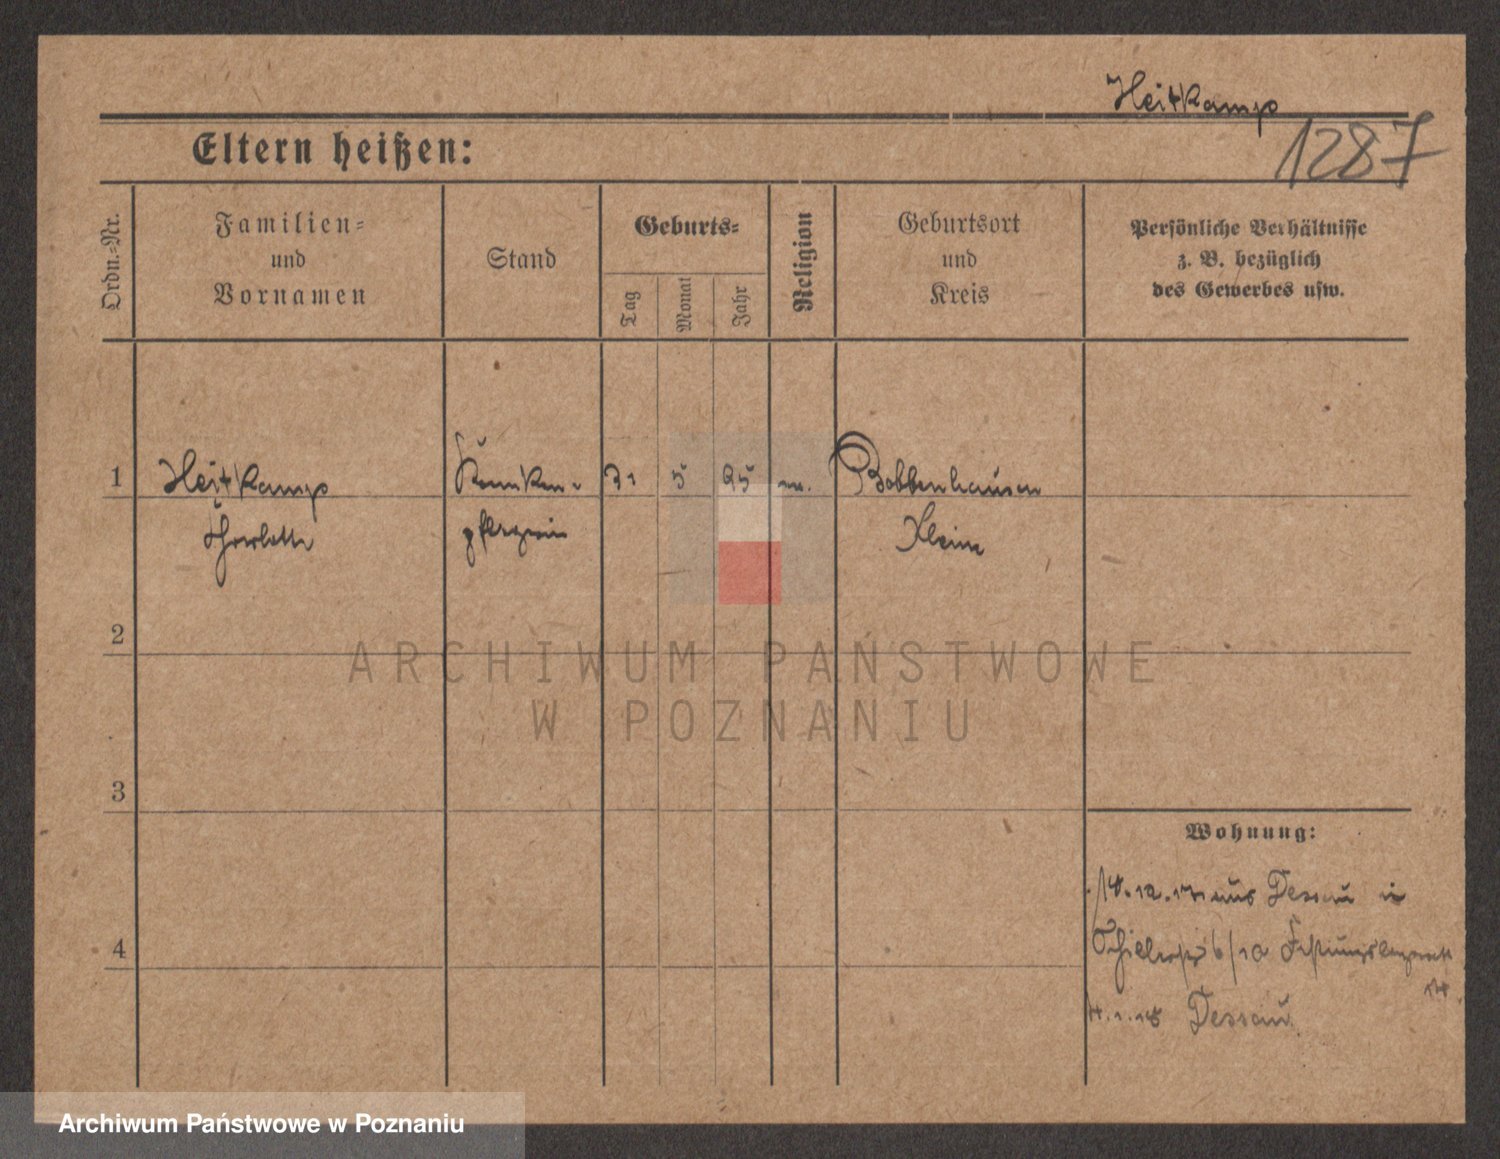 Heitkamp
1287
Eltern heißen:
Ordn.-Nr.
Familien-
und
Vornamen
Stand
Geburts-
Tag
Monat
Jahr
Religion
Geburtsort
und
Kreis
Persönliche Verhältnisse
z. B. bezüglich
des Gewerbes usw.
1
Heitkamp
Kranken-
5
Bobbenhausen
pflegerin
2
3
4
Wohnung:
aus Dessau in
Schillerstr 6/10 Festungslazarett
Dessau
ARCHIWUM PAŃSTWOWE
W POZNANIU
Archiwum Państwowe w Poznaniu